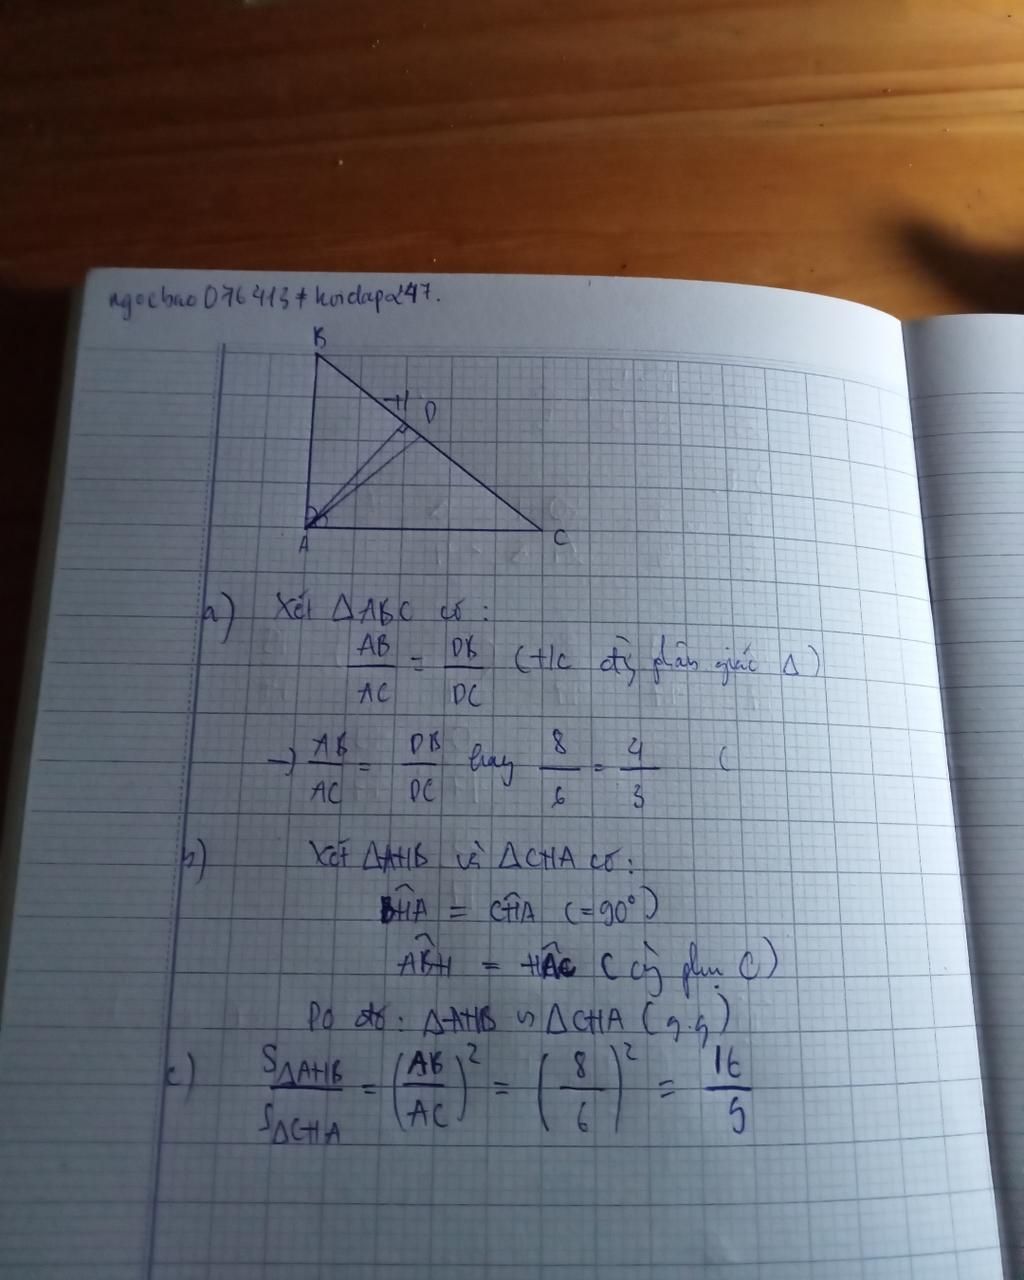 ngocbao076413 # hoidap247.
B
H
D
A
C
a) Xét ΔABC có:
AB/AC = DB/DC (t/c đg phân giác Δ)
→ AB/AC = DB/DC hay 8/6 = 4/3 (
b) Xét ΔAHB và ΔCHA có:
BHA = CHA (=90°)
ABH = HAC (cg phụ C)
Do đó: ΔAHB ∽ ΔCHA (g.g)
c) SΔAHB/SΔCHA = (AB/AC)² = (8/6)² = 16/9